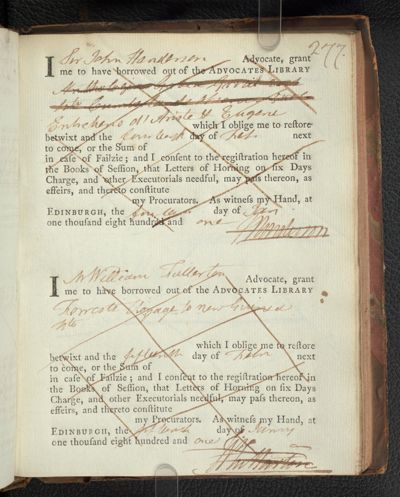 277
I Sir John Henderson Advocate, grant
me to have borrowed out of the ADVOCATES LIBRARY
Entretiens d'Ariste & Eugene
which I oblige me to restore
betwixt and the day of next
to come, or the Sum of
in case of Failzie; and I consent to the registration hereof in
the Books of Session, that Letters of Horning on six Days
Charge, and other Executorials needful, may pass thereon, as
effeirs, and thereto constitute
my Procurators. As witness my Hand, at
EDINBURGH, the day of
one thousand eight hundred and one
I Mr William Fullerton Advocate, grant
me to have borrowed out of the ADVOCATES LIBRARY
Forrests Voyage to new Guinea
which I oblige me to restore
betwixt and the fifteenth day of next
to come, or the Sum of
in case of Failzie; and I consent to the registration hereof in
the Books of Session, that Letters of Horning on six Days
Charge, and other Executorials needful, may pass thereon, as
effeirs, and thereto constitute
my Procurators. As witness my Hand, at
EDINBURGH, the day of
one thousand eight hundred and one